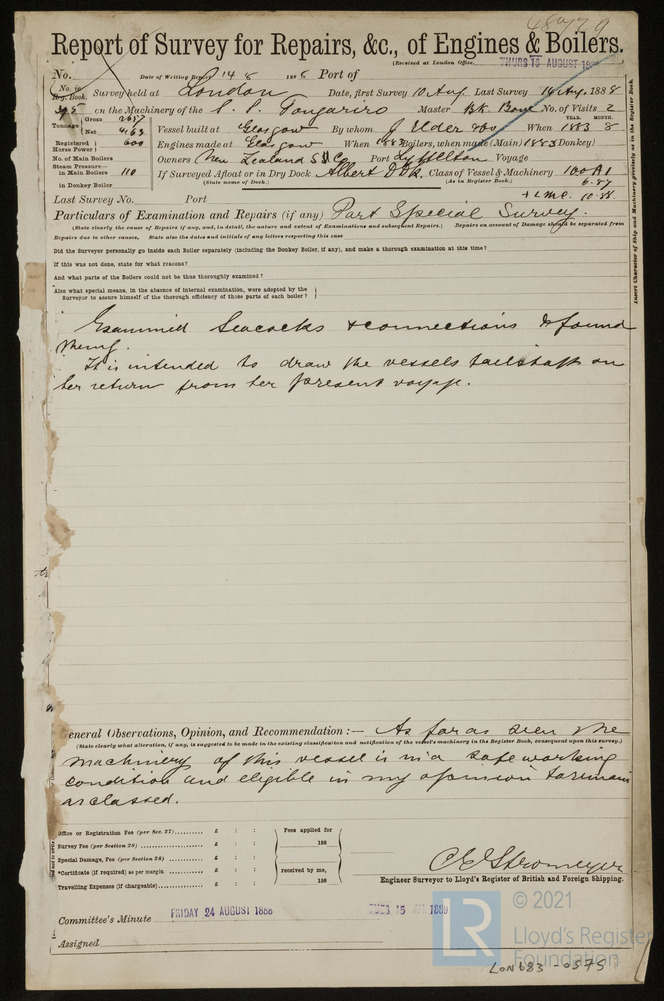 48079
Report of Survey for Repairs, &c., of Engines & Boilers.
(Received at London Office, THURS 16 AUGUST 1888
No. Date of Writing Report 14 8 1888 Port of
No. in Reg. Book. Survey held at London Date, first Survey 10 Aug. Last Survey 14 Aug. 1888
on the Machinery of the S. S. Tongariro Master No. of Visits 2
Tonnage Gross Net 4163 Vessel built at Glasgow By whom J Elder & Co When YEAR. 1883 MONTH. 8
Registered Horse Power 600 Engines made at Glasgow When 1883 Boilers, when made (Main) 1883 Donkey)
No. of Main Boilers Owners New Zealand S.S. Co Port Lyttelton Voyage
Steam Pressure— in Main Boilers 110 If Surveyed Afloat or in Dry Dock Albert Dk. Class of Vessel & Machinery 100A1
(State name of Dock.) (As in Register Book.) 6.87
in Donkey Boiler
+ LMC. 10.
Last Survey No. Port
Particulars of Examination and Repairs (if any) Part Special Survey.
(State clearly the cause of Repairs if any, and, in detail, the nature and extent of Examinations and subsequent Repairs.) Repairs on account of Damage should be separated from
Repairs due to other causes, State also the dates and initials of any letters respecting this case
Did the Surveyor personally go inside each Boiler separately (including the Donkey Boiler, if any), and make a thorough examination at this time?
If this was not done, state for what reasons?
And what parts of the Boilers could not be thus thoroughly examined?
Also what special means, in the absence of internal examination, were adopted by the
Surveyor to assure himself of the thorough efficiency of those parts of each boiler?
Insert Character of Ship and Machinery precisely as in the Register Book.
Examined Seacocks & connections & found
them g.
It is intended to draw the vessels tailshaft on
her return from her present voyage.
General Observations, Opinion, and Recommendation :— As far as seen the
(State clearly what alteration, if any, is suggested to be made in the existing classification and notification of the vessel's machinery in the Register Book, consequent upon this survey.)
machinery of this vessel is in a safe working
condition and eligible in my opinion to remain
as classed.
Office or Registration Fee (per Sec. 27) £ : : Fees applied for
Survey Fee (per Section 28) £ : : 188
Special Damage, Fee (per Section 28) £ : :
*Certificate (if required) as per margin £ : : received by me,
Travelling Expenses (if chargeable) £ : : 188
C E Stromeyer
Engineer Surveyor to Lloyd's Register of British and Foreign Shipping.
Committee's Minute FRIDAY 24 AUGUST 1888 TUES 15 JAN 1889
Assigned
LR © 2021
Lloyd's Register
Foundation
LON683-0575